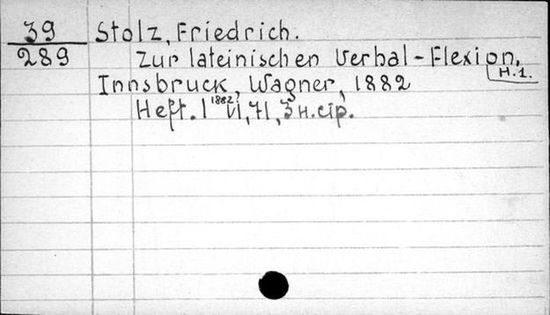 39 Stolz, Friedrich.
289 Zur lateinischen Verbal-Flexion.
H.1.
Innsbruck, Wagner, 1882
Heft. 1 1882 VI, 71, 3 н.стр.